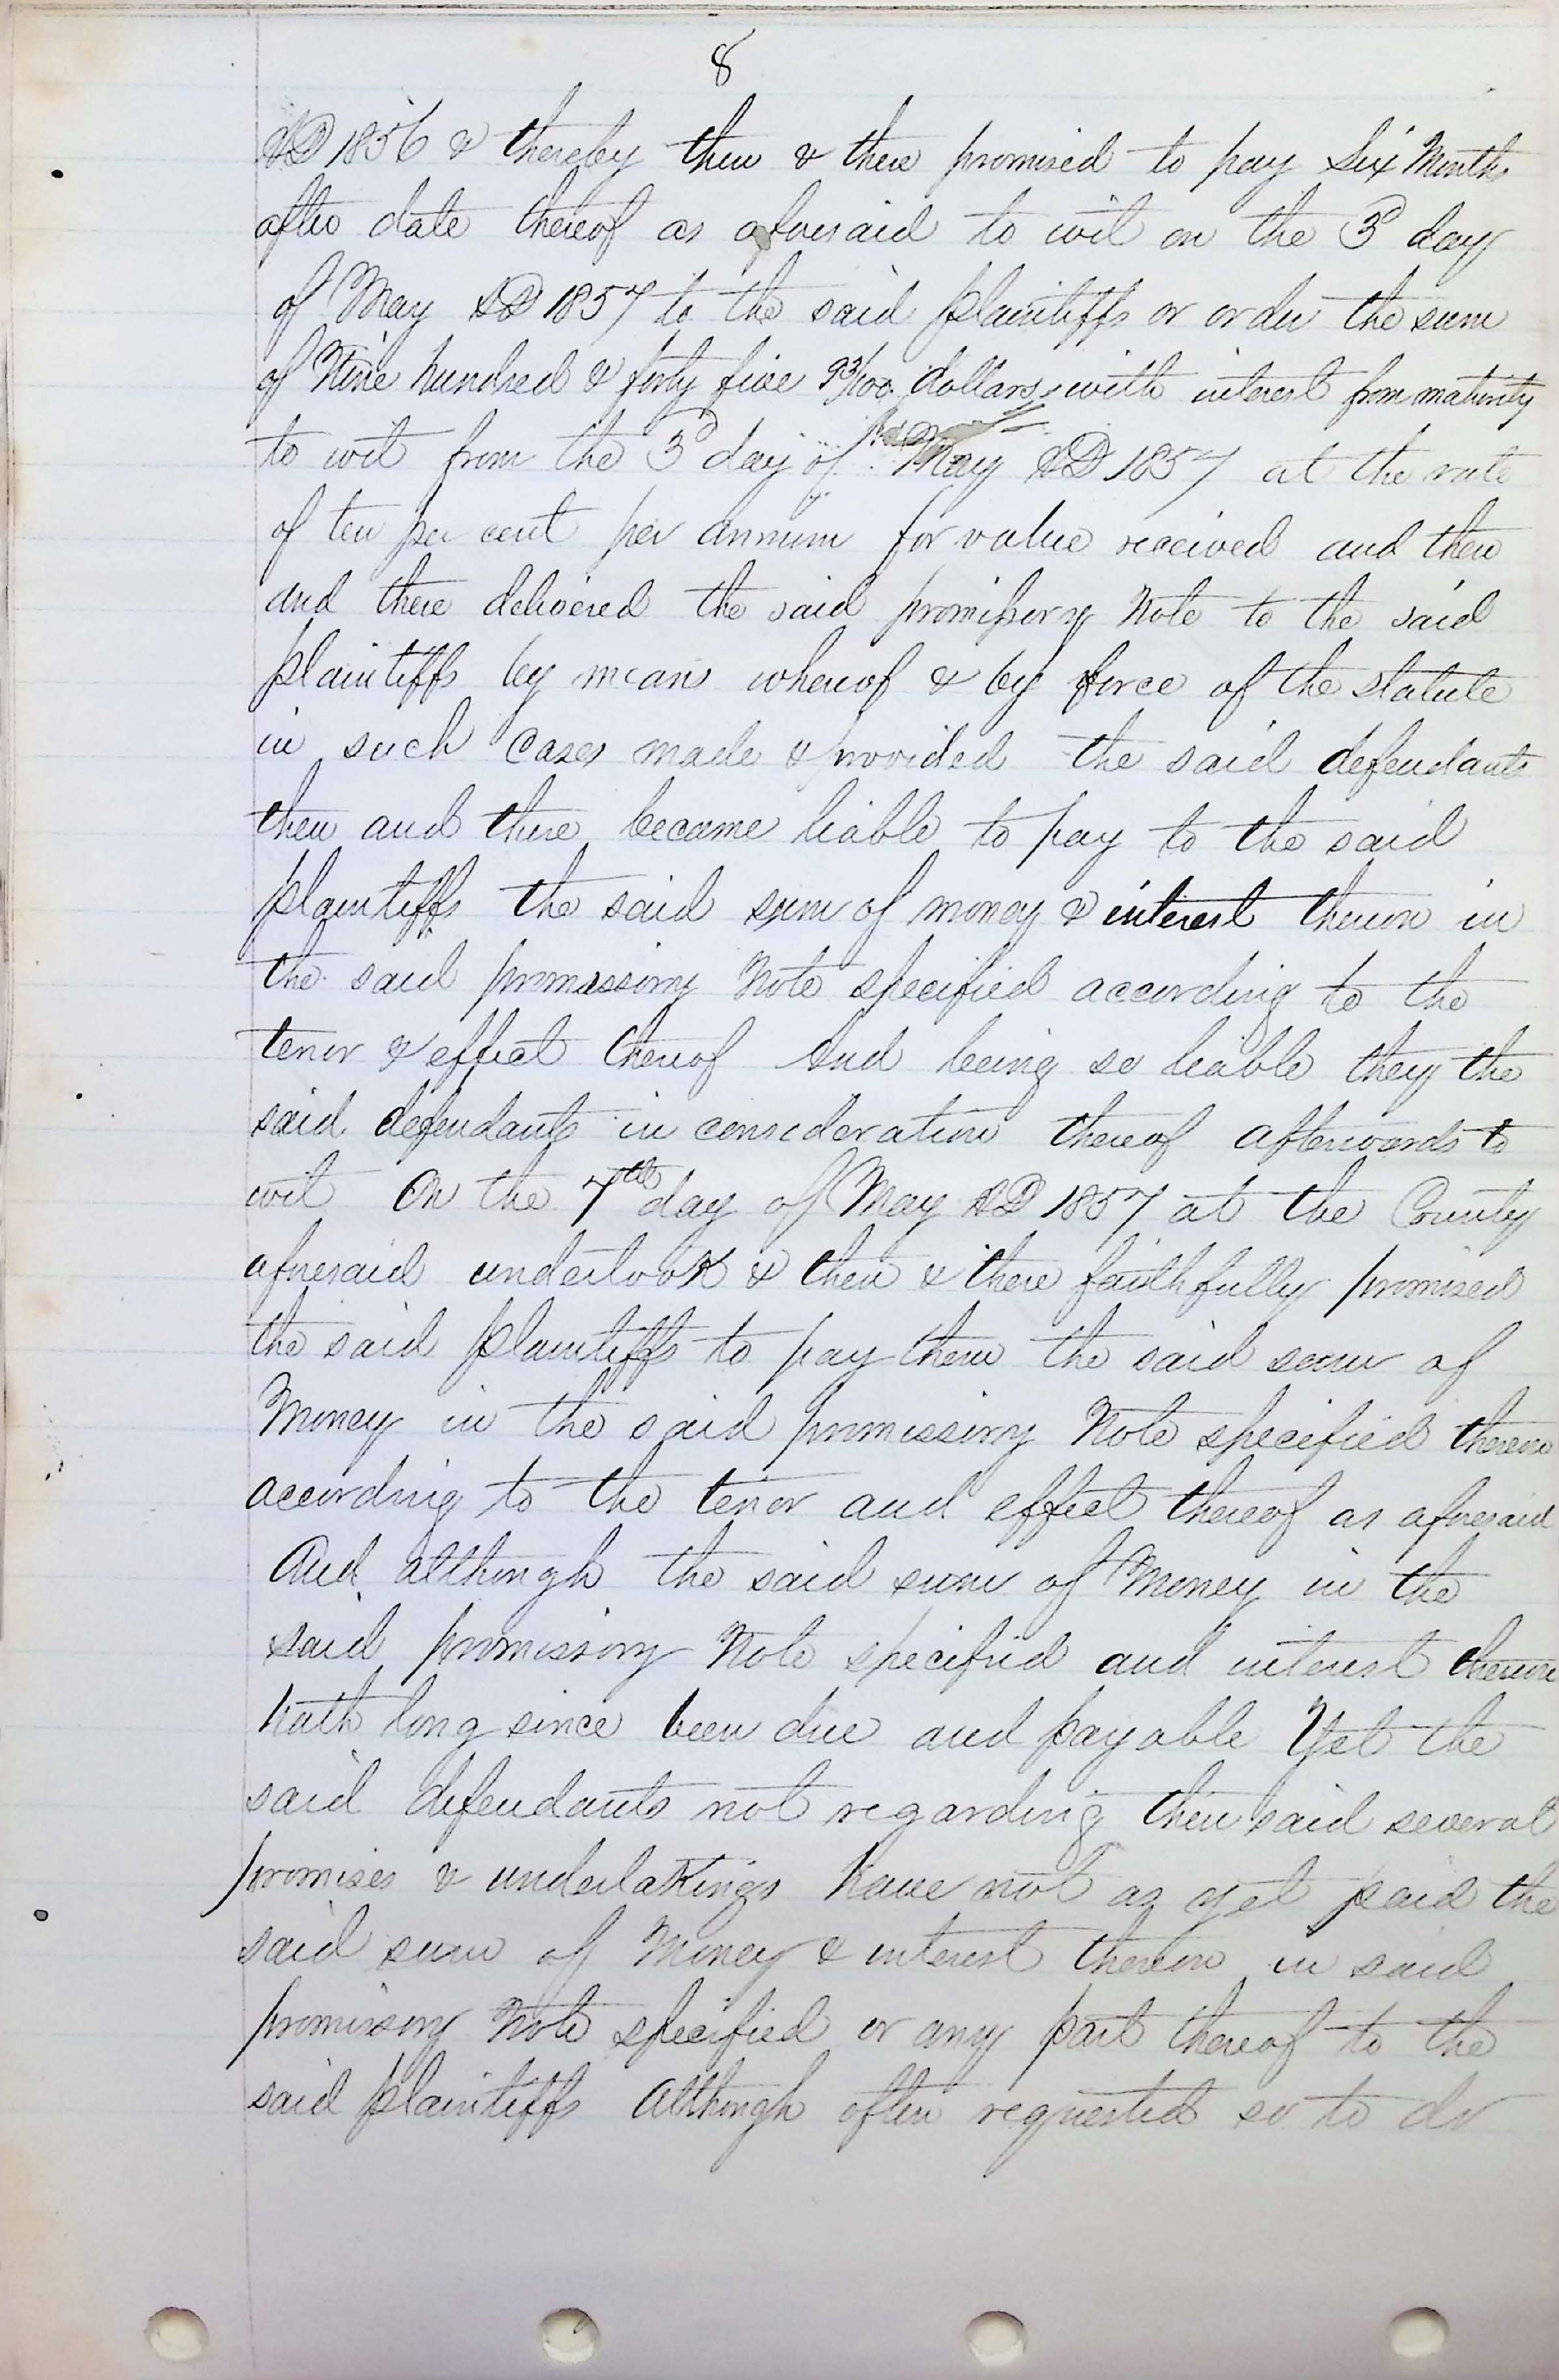 8
AD 1856 & thereby then & there promised to pay Six Months
after date thereof as aforesaid to wit on the 3d day
of May AD 1857 to the said plaintiffs or order the sum
of Nine hundred & forty five 93/100 dollars, with interest from maturity
to wit from the 3d day of May AD 1857 at the rate
of ten per cent per annum for value received and then
and there delivered the said promissory Note to the said
plaintiffs by means whereof & by force of the statute
in such cases made & provided the said defendants
then and there became liable to pay to the said
plaintiffs the said sum of money & interest thereon in
the said promissory Note specified according to the
tenor & effect thereof And being so liable they the
said defendants in consideration thereof afterwards to
wit On the 7th day of May AD 1857 at the County
aforesaid undertook & then & there faithfully promised
the said plaintiffs to pay them the said sum of
Money in the said promissory Note specified thereon
according to the tenor and effect thereof as aforesaid
And although the said sum of Money in the
said promissory Note specified and interest thereon
hath long since been due and payable Yet the
said defendants not regarding their said several
promises & undertakings have not as yet paid the
said sum of Money & interest thereon in said
promissory Note specified or any part thereof to the
said plaintiffs although often requested so to do